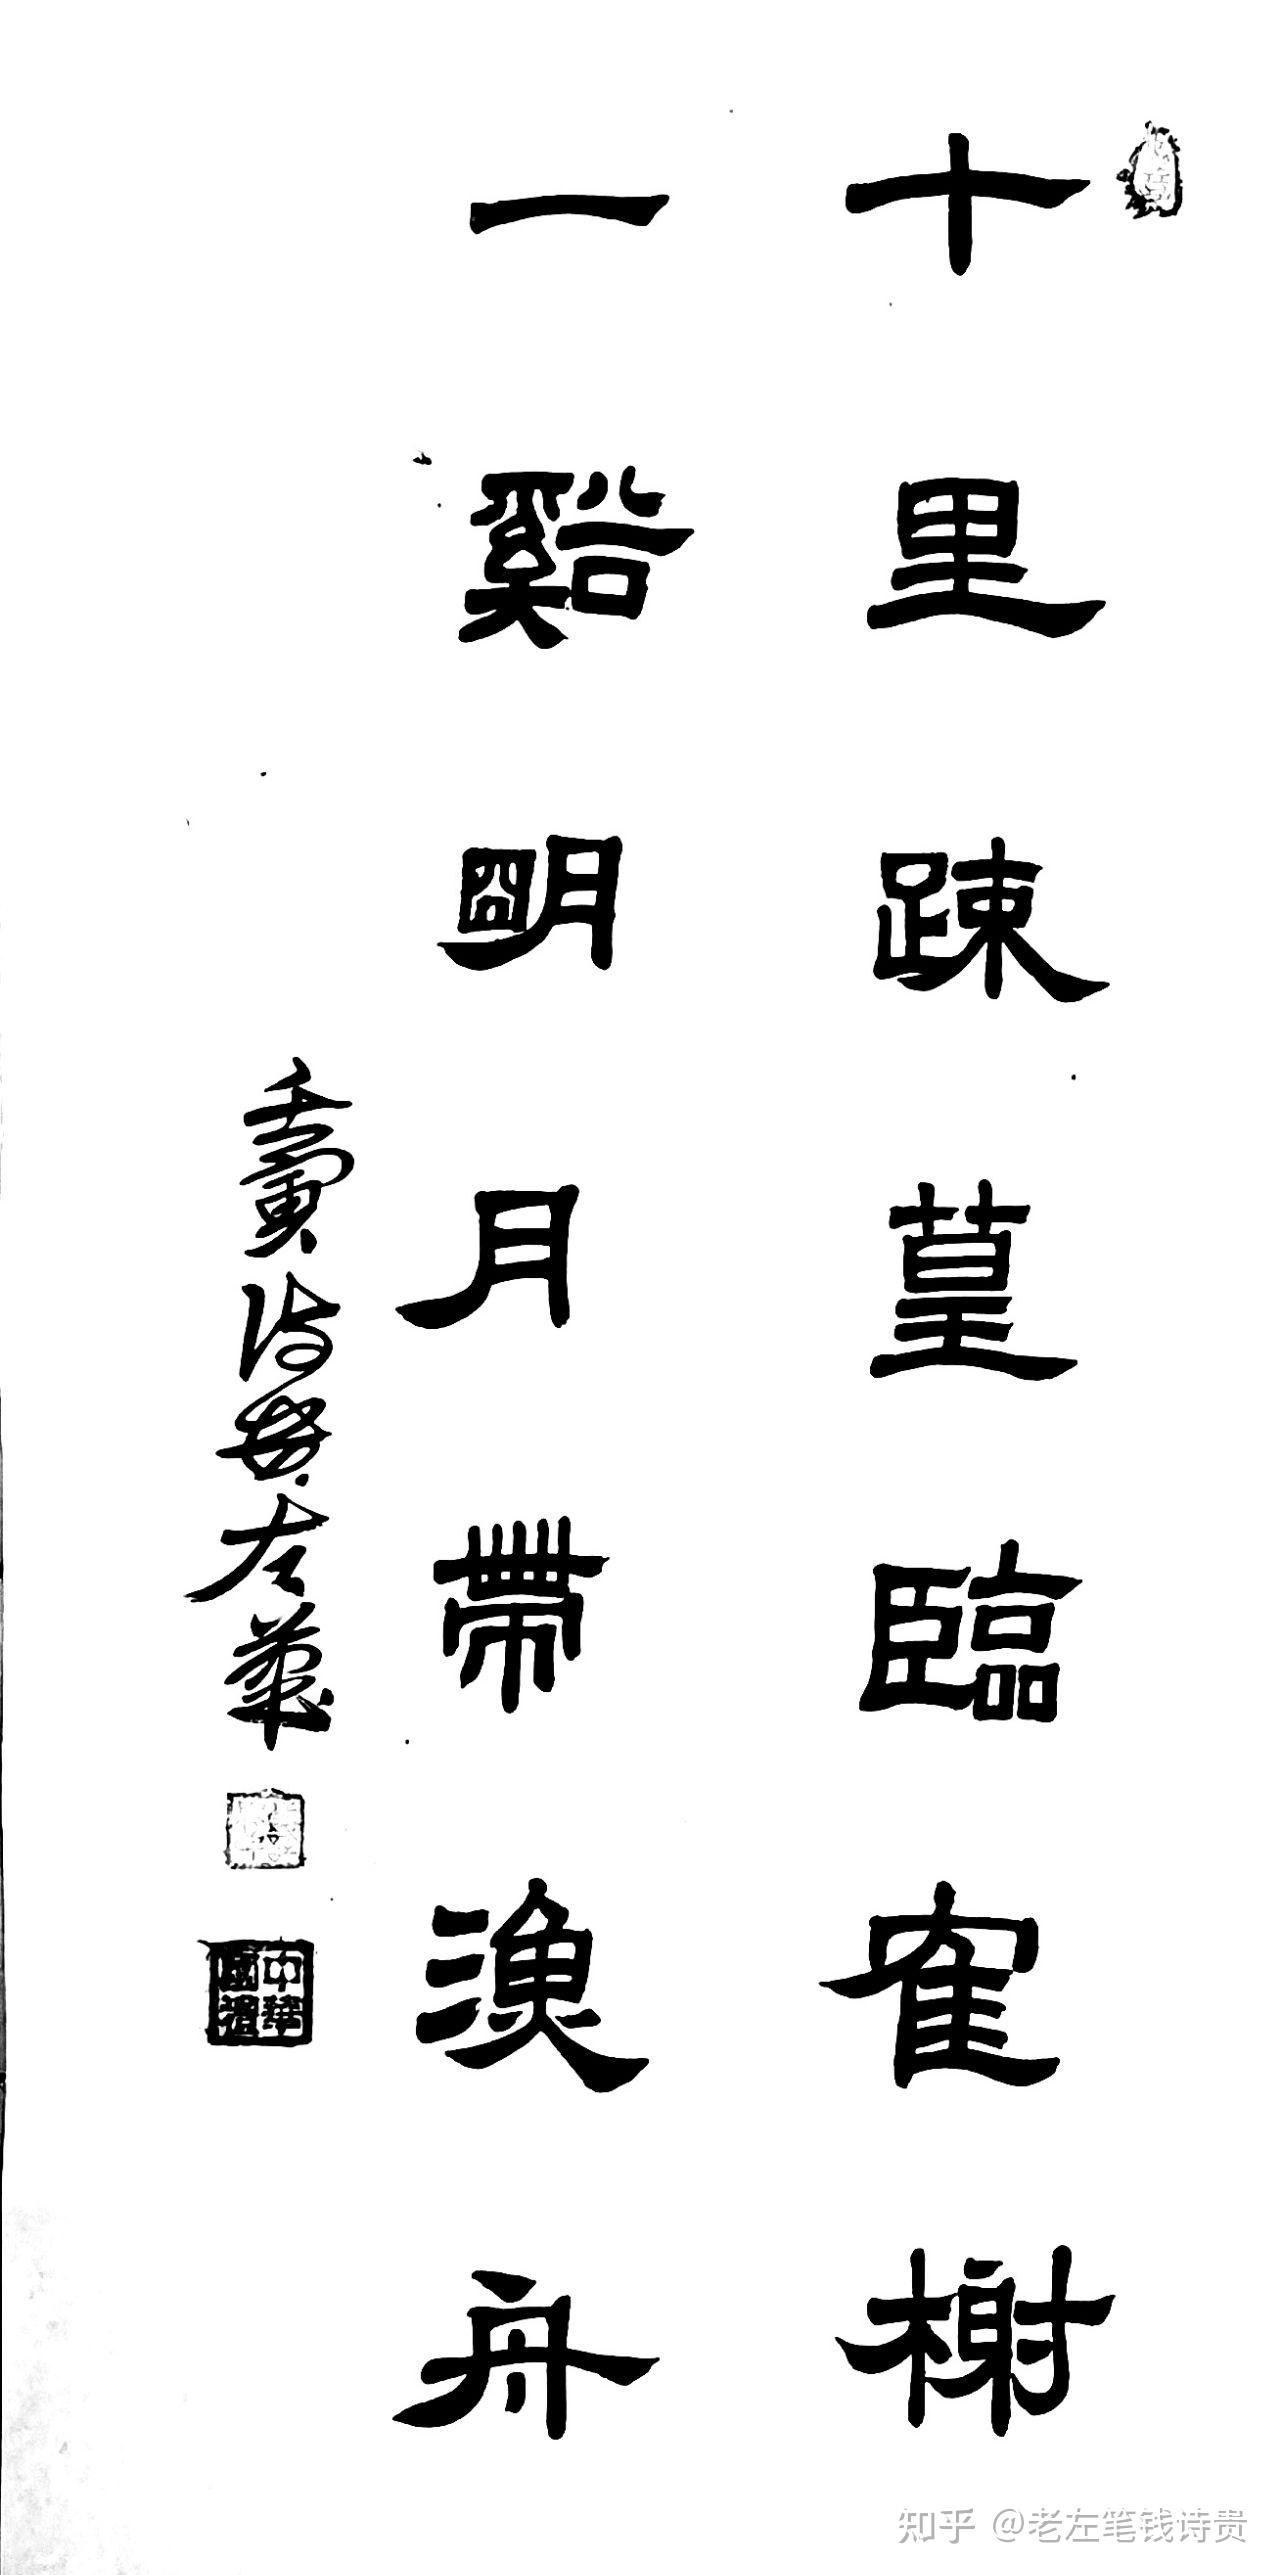 十里疎篁臨隺榭
一谿明月帶漁舟
壬寅詩貴左筆
中華國禮
知乎 @老左笔钱诗贵